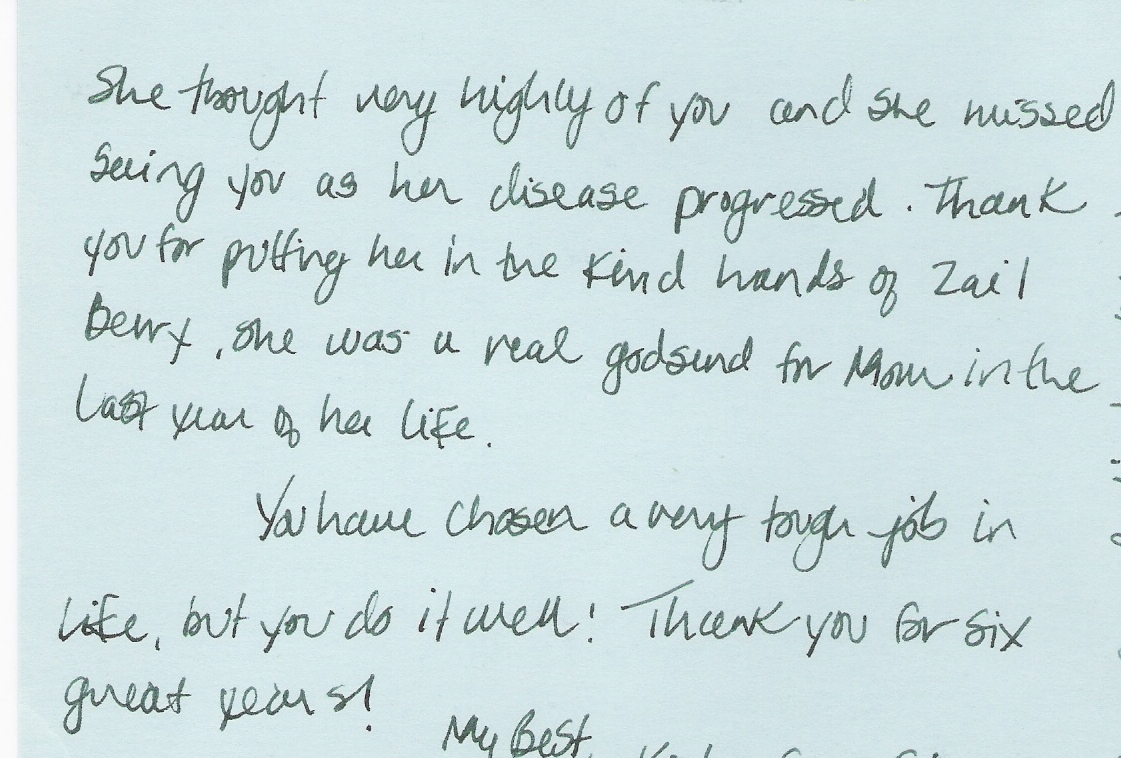 She thought very highly of you and she missed
seeing you as her disease progressed. Thank
you for putting her in the kind hands of Zail
Berry, she was a real godsend for Mom in the
last year of her life.
You have chosen a very tough job in
life, but you do it well! Thank you for six
great years!
My Best,